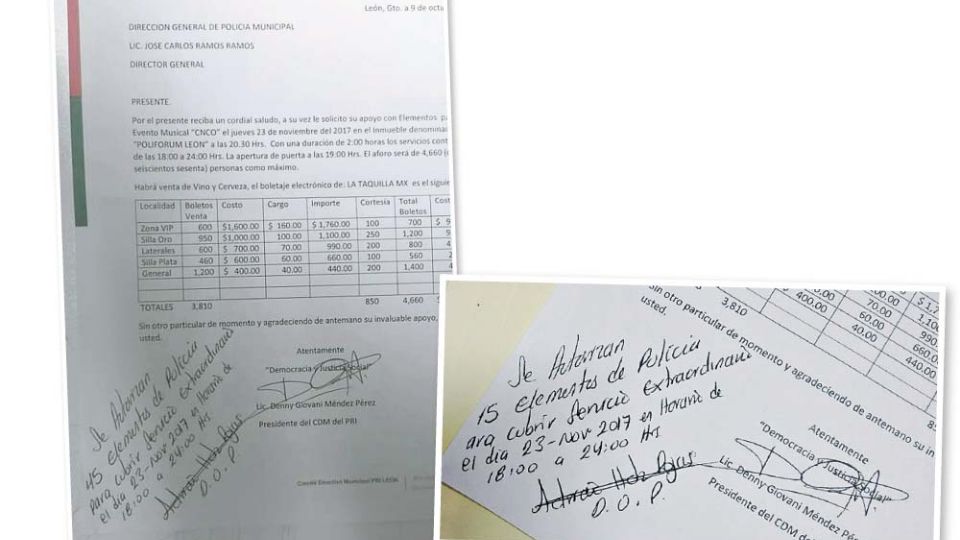 León, Gto. a 9 de octu
DIRECCION GENERAL DE POLICIA MUNICIPAL
LIC. JOSE CARLOS RAMOS RAMOS
DIRECTOR GENERAL
PRESENTE.
Por el presente reciba un cordial saludo, a su vez le solicito su apoyo con Elementos pa
Evento Musical "CNCO" el jueves 23 de noviembre del 2017 en el inmueble denomina
"POLIFORUM LEON" a las 20.30 Hrs. Con una duración de 2:00 horas los servicios cont
de las 18:00 a 24:00 Hrs. La apertura de puerta a las 19:00 Hrs. El aforo será de 4,660 (c
seiscientos sesenta) personas como máximo.
Habrá venta de Vino y Cerveza, el boletaje electrónico de: LA TAQUILLA MX es el siguie
Localidad Boletos Venta Costo Cargo Importe Cortesía Total Boletos Cost
Zona VIP 600 $1,600.00 $ 160.00 $ 1,760.00 100 700 $ 9
Silla Oro 950 $1,000.00 100.00 1,100.00 250 1,200 9
Laterales 600 $ 700.00 70.00 990.00 200 800 4
Silla Plata 460 $ 600.00 60.00 660.00 100 560 2
General 1,200 $ 400.00 40.00 440.00 200 1,400 4
TOTALES 3,810 850 4,660 $
Sin otro particular de momento y agradeciendo de antemano su invaluable apoyo,
usted.
Atentamente
"Democracia y Justicia Social"
Lic. Denny Giovani Méndez Pérez
Presidente del CDM del PRI
Comité Directivo Municipal PRI LEÓN
Se Autorizan
45 elementos de Policía
para cubrir Servicio Extraordinario
el día 23-Nov 2017 en Horario de
18:00 a 24:00 Hrs
D.O.P.
400.00 70.00 $ 1,7
60.00 1,100
40.00 990.
660.0
440.00
3,810
Sin otro particular de momento y agradeciendo de antemano su in
usted.
Se Autorizan
15 elementos de Policía
ara cubrir Servicio Extraordinario
el día 23-Nov 2017 en Horario de
18:00 a 24:00 Hrs
D.O.P.
Atentamente
"Democracia y Justicia Social"
Lic. Denny Giovani Méndez Pé
Presidente del CDM del P